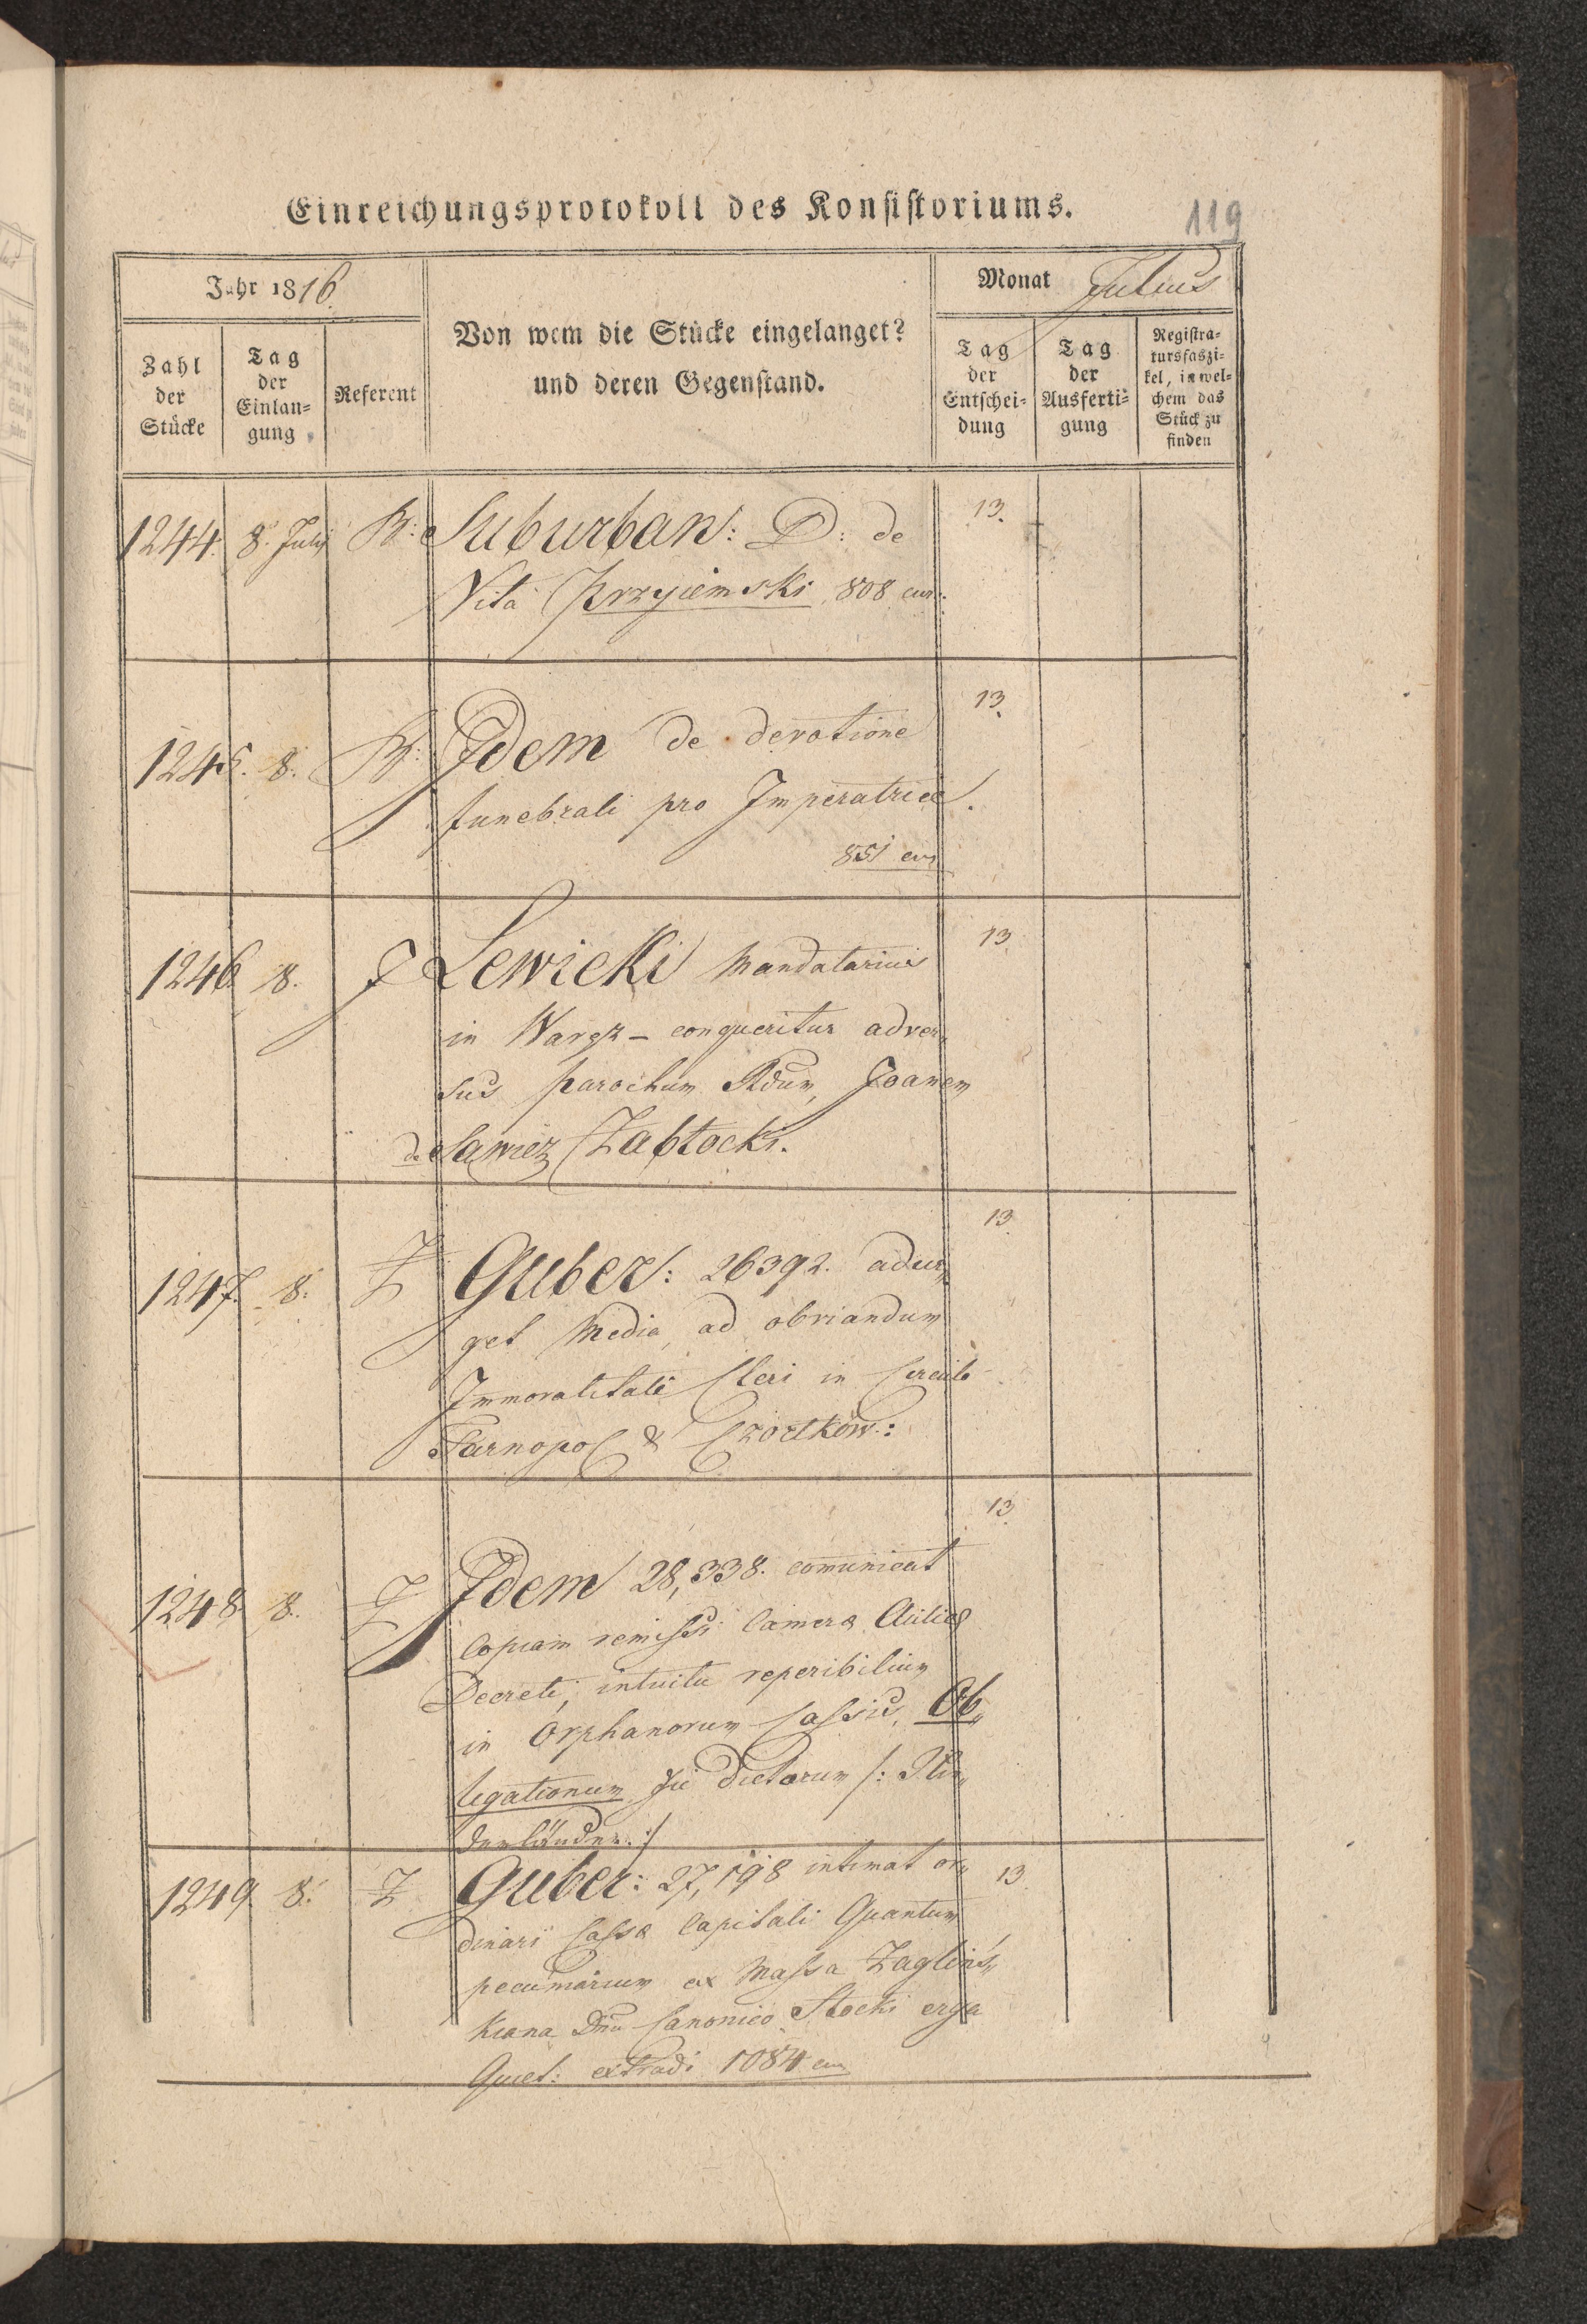 Einreichungsprotokoll des Konsistoriums.
119
Jahr 1816.
Monat Julius
Zahl der Stücke
Tag der Einlan-gung
Referent
Von wem die Stücke eingelanget?
und deren Gegenstand.
Tag der Entschei-dung
Tag der Ausferti-gung
Registra-tursfaszi-kel, in wel-chem das Stück zu finden
1244. 8. July B: Suburban: D: de 13.
Vita Przyiemski 808 cur:
1245. 8. B: Idem de devotione 13.
funebrali pro Imperatrice.
851 cur
1246. 8. J Lewicki Mandatarius 13.
in Waręz – conqueritur adver„
sus parochum Rdum, Joanem
de Sawicz Zabłocki.
1247. 8. Z Guber: 26392. adur„ 13.
get Media, ad obviandum
Immoralitati Cleri in Circulo
Tarnopol & Czortkow:
1248 8. Z Idem 28,338. communicat 13.
Copiam remissi Camerae Aulicae
Decreti, intuitu reperibilium
in Orphanorum Cassis, Ob„
ligationum Sic dictarum /: Nie„
derländer. :/
1249. 8. Z Guber: 27,198 intimat or„ 13.
dinari Cassae Capitali Quantum
pecuniarium ex Massa Zaglińs„
kiana Dno Canonico Stocki erga
Quiet: extradi 1084 cur